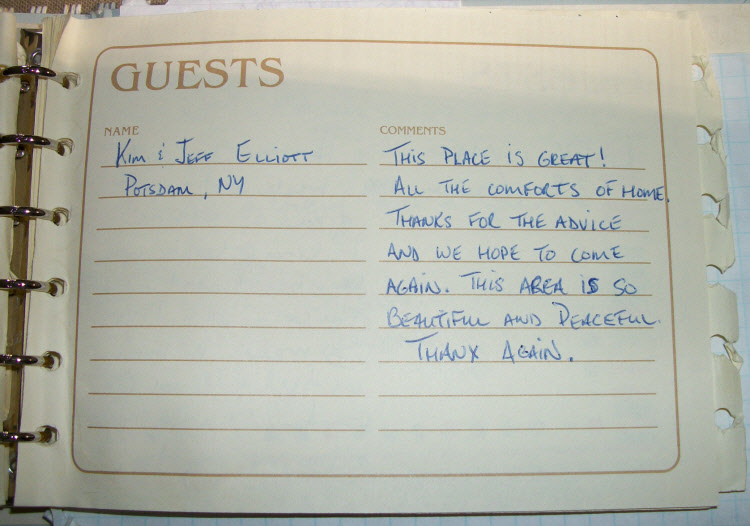 GUESTS
NAME
COMMENTS
KIM & JEFF ELLIOTT
POTSDAM, NY
THIS PLACE IS GREAT!
ALL THE COMFORTS OF HOME.
THANKS FOR THE ADVICE
AND WE HOPE TO COME
AGAIN. THIS AREA IS SO
BEAUTIFUL AND PEACEFUL.
THANX AGAIN.